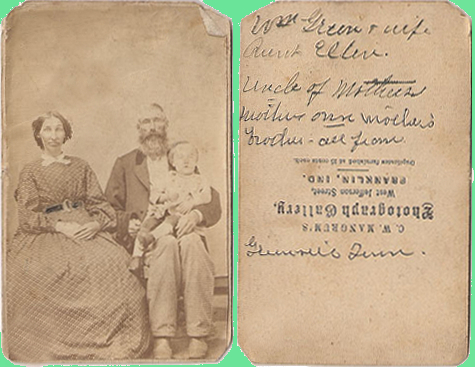 Wm Green & wife
Aunt Ellen.
Uncle of Mothers
mother our mother's
brother - all from
Greenville Tenn.
C. W. MANGRUM'S
Photograph Gallery,
West Jefferson Street,
FRANKLIN, IND.
Duplicates furnished at 25 cents each.